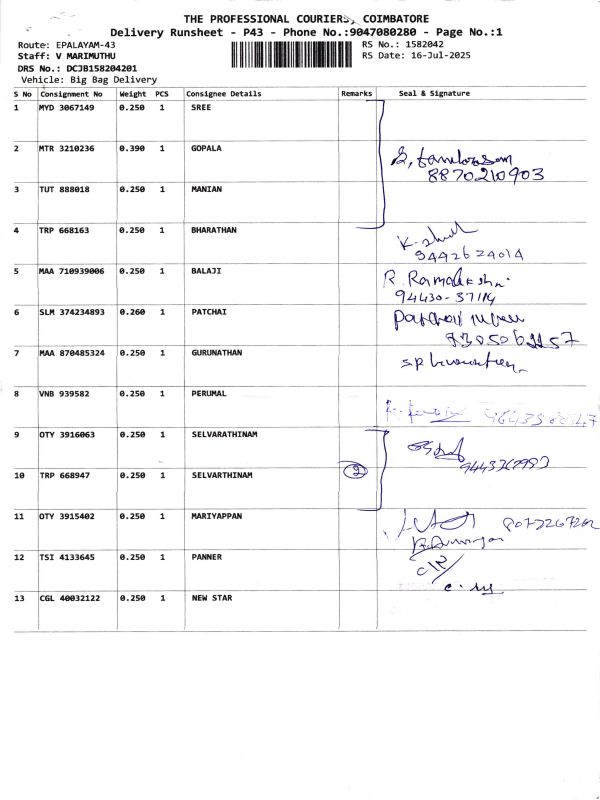 THE PROFESSIONAL COURIERS, COIMBATORE
Delivery Runsheet - P43 - Phone No.:9047080280 - Page No.:1
Route: EPALAYAM-43 RS No.: 1582042
Staff: V MARIMUTHU RS Date: 16-Jul-2025
DRS No.: DCJB158204201
Vehicle: Big Bag Delivery
S No Consignment No Weight PCS Consignee Details Remarks Seal & Signature
1 MYD 3067149 0.250 1 SREE
2 MTR 3210236 0.390 1 GOPALA
8870210903
3 TUT 888018 0.250 1 MANIAN
4 TRP 668163 0.250 1 BHARATHAN
9442624014
5 MAA 710939006 0.250 1 BALAJI
94430-37114
6 SLM 374234893 0.260 1 PATCHAI
7 MAA 870485324 0.250 1 GURUNATHAN
8 VNB 939582 0.250 1 PERUMAL
9 OTY 3916063 0.250 1 SELVARATHINAM
10 TRP 668947 0.250 1 SELVARTHINAM 2
11 OTY 3915402 0.250 1 MARIYAPPAN
12 TSI 4133645 0.250 1 PANNER
13 CGL 40032122 0.250 1 NEW STAR